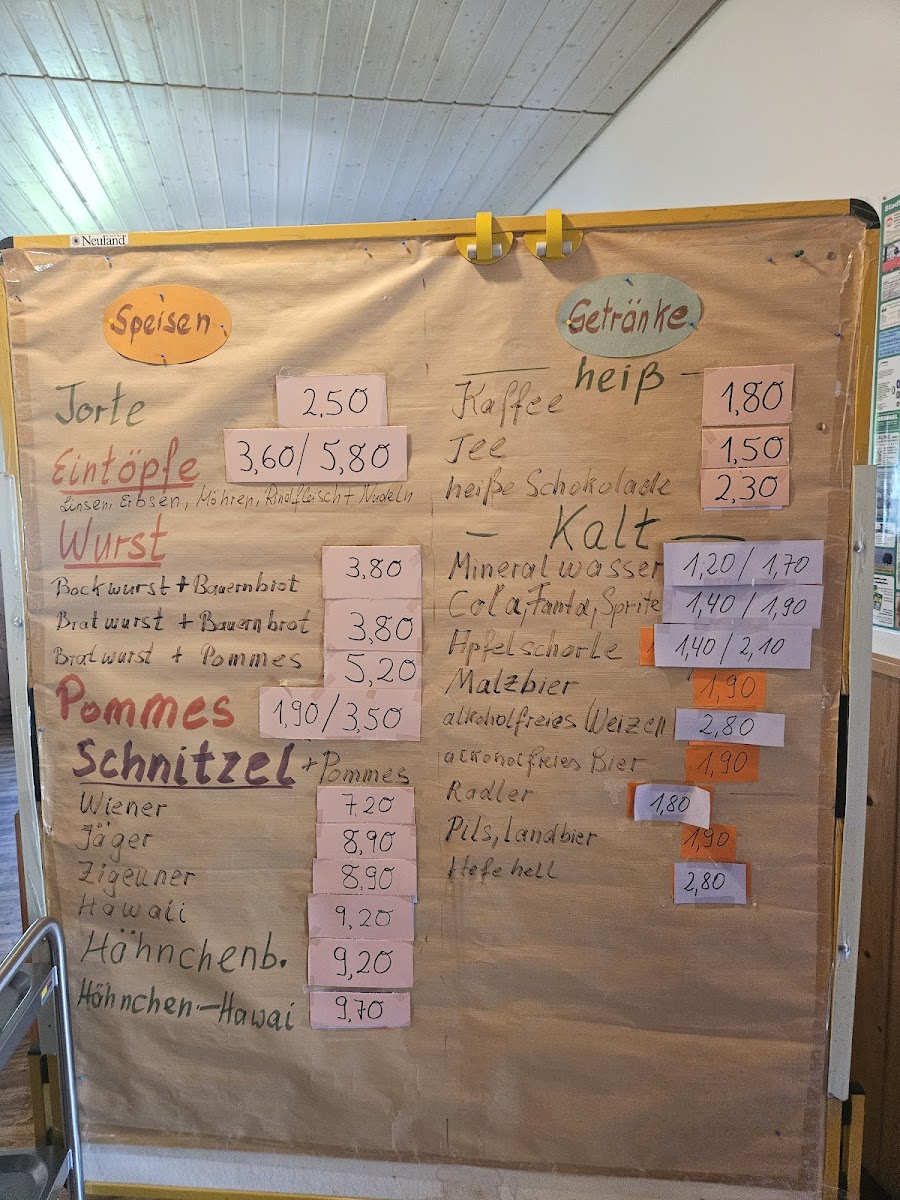 Neuland
Speisen
Torte 2,50
Eintöpfe 3,60/5,80
Linsen, Erbsen, Möhren, Rindfleisch + Nudeln
Wurst
Bockwurst + Bauernbrot 3,80
Bratwurst + Bauernbrot 3,80
Bratwurst + Pommes 5,20
Pommes 1,90/3,50
Schnitzel + Pommes
Wiener 7,20
Jäger 8,90
Zigeuner 8,90
Hawaii 9,20
Hähnchenb. 9,20
Hähnchen-Hawai 9,70
Getränke
heiß -
Kaffee 1,80
Tee 1,50
heiße Schokolade 2,30
- Kalt -
Mineralwasser 1,20/1,70
Cola, Fanta, Sprite 1,40/1,90
Apfelschorle 1,40/2,10
Malzbier 1,90
alkoholfreies Weizen 2,80
alkoholfreies Bier 1,90
Radler 1,80
Pils, Landbier 1,90
Hefe hell 2,80